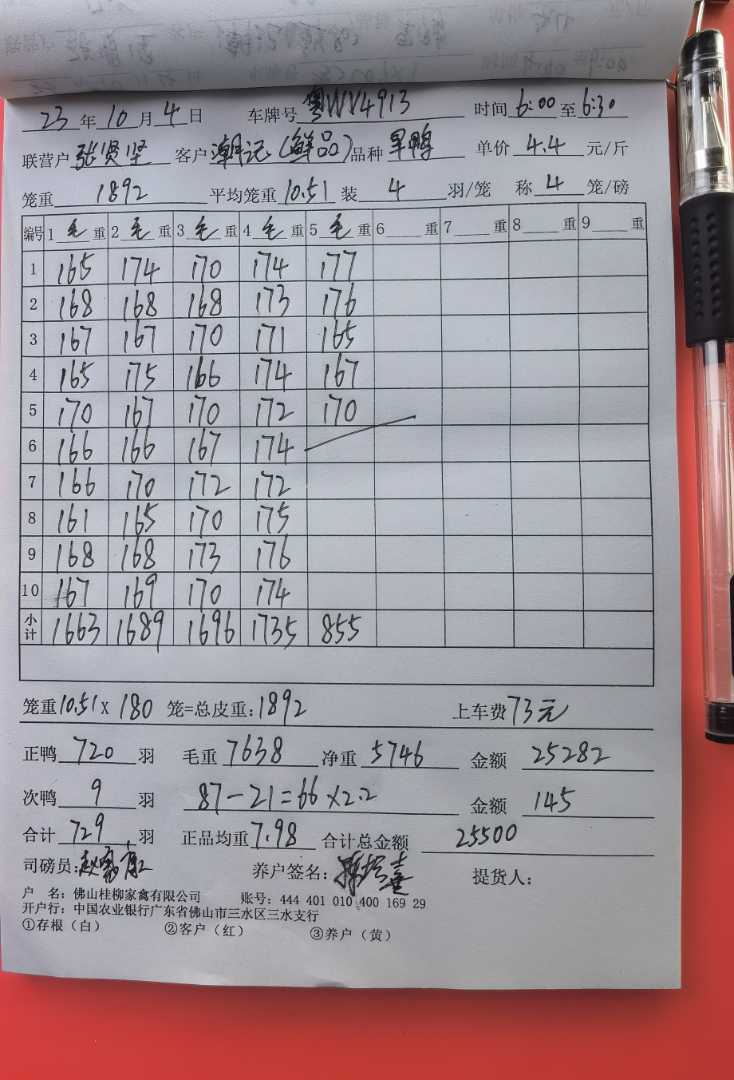 23年10月4日 车牌号 粤WV4913 时间 6:00 至 6:30
联营户 张贤坚 客户 潮记(鲜品) 品种 旱鸭 单价 4.4 元/斤
笼重 1892 平均笼重 10.51 装 4 羽/笼 称 4 笼/磅
编号 1 毛 重 2 毛 重 3 毛 重 4 毛 重 5 毛 重 6 重 7 重 8 重 9 重
1 165 174 170 174 177
2 168 168 168 173 176
3 167 167 170 171 165
4 165 175 166 174 167
5 170 167 170 172 170
6 166 166 167 174
7 166 170 172 172
8 161 165 170 175
9 168 168 173 176
10 167 169 170 174
小计 1663 1689 1696 1735 855
笼重 10.51 X 180 笼=总皮重: 1892 上车费 73元
正鸭 720 羽 毛重 7638 净重 5746 金额 25282
次鸭 9 羽 87-21=66×2.2 金额 145
合计 729 羽 正品均重 7.98 合计总金额 25500
司磅员: 养户签名: 提货人:
户 名: 佛山桂柳家禽有限公司 账号: 444 401 010 400 169 29
开户行: 中国农业银行广东省佛山市三水区三水支行
①存根(白) ②客户(红) ③养户(黄)